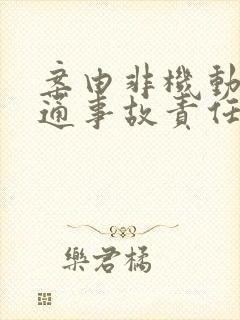 案由非機動
通事故責任
樂君橘